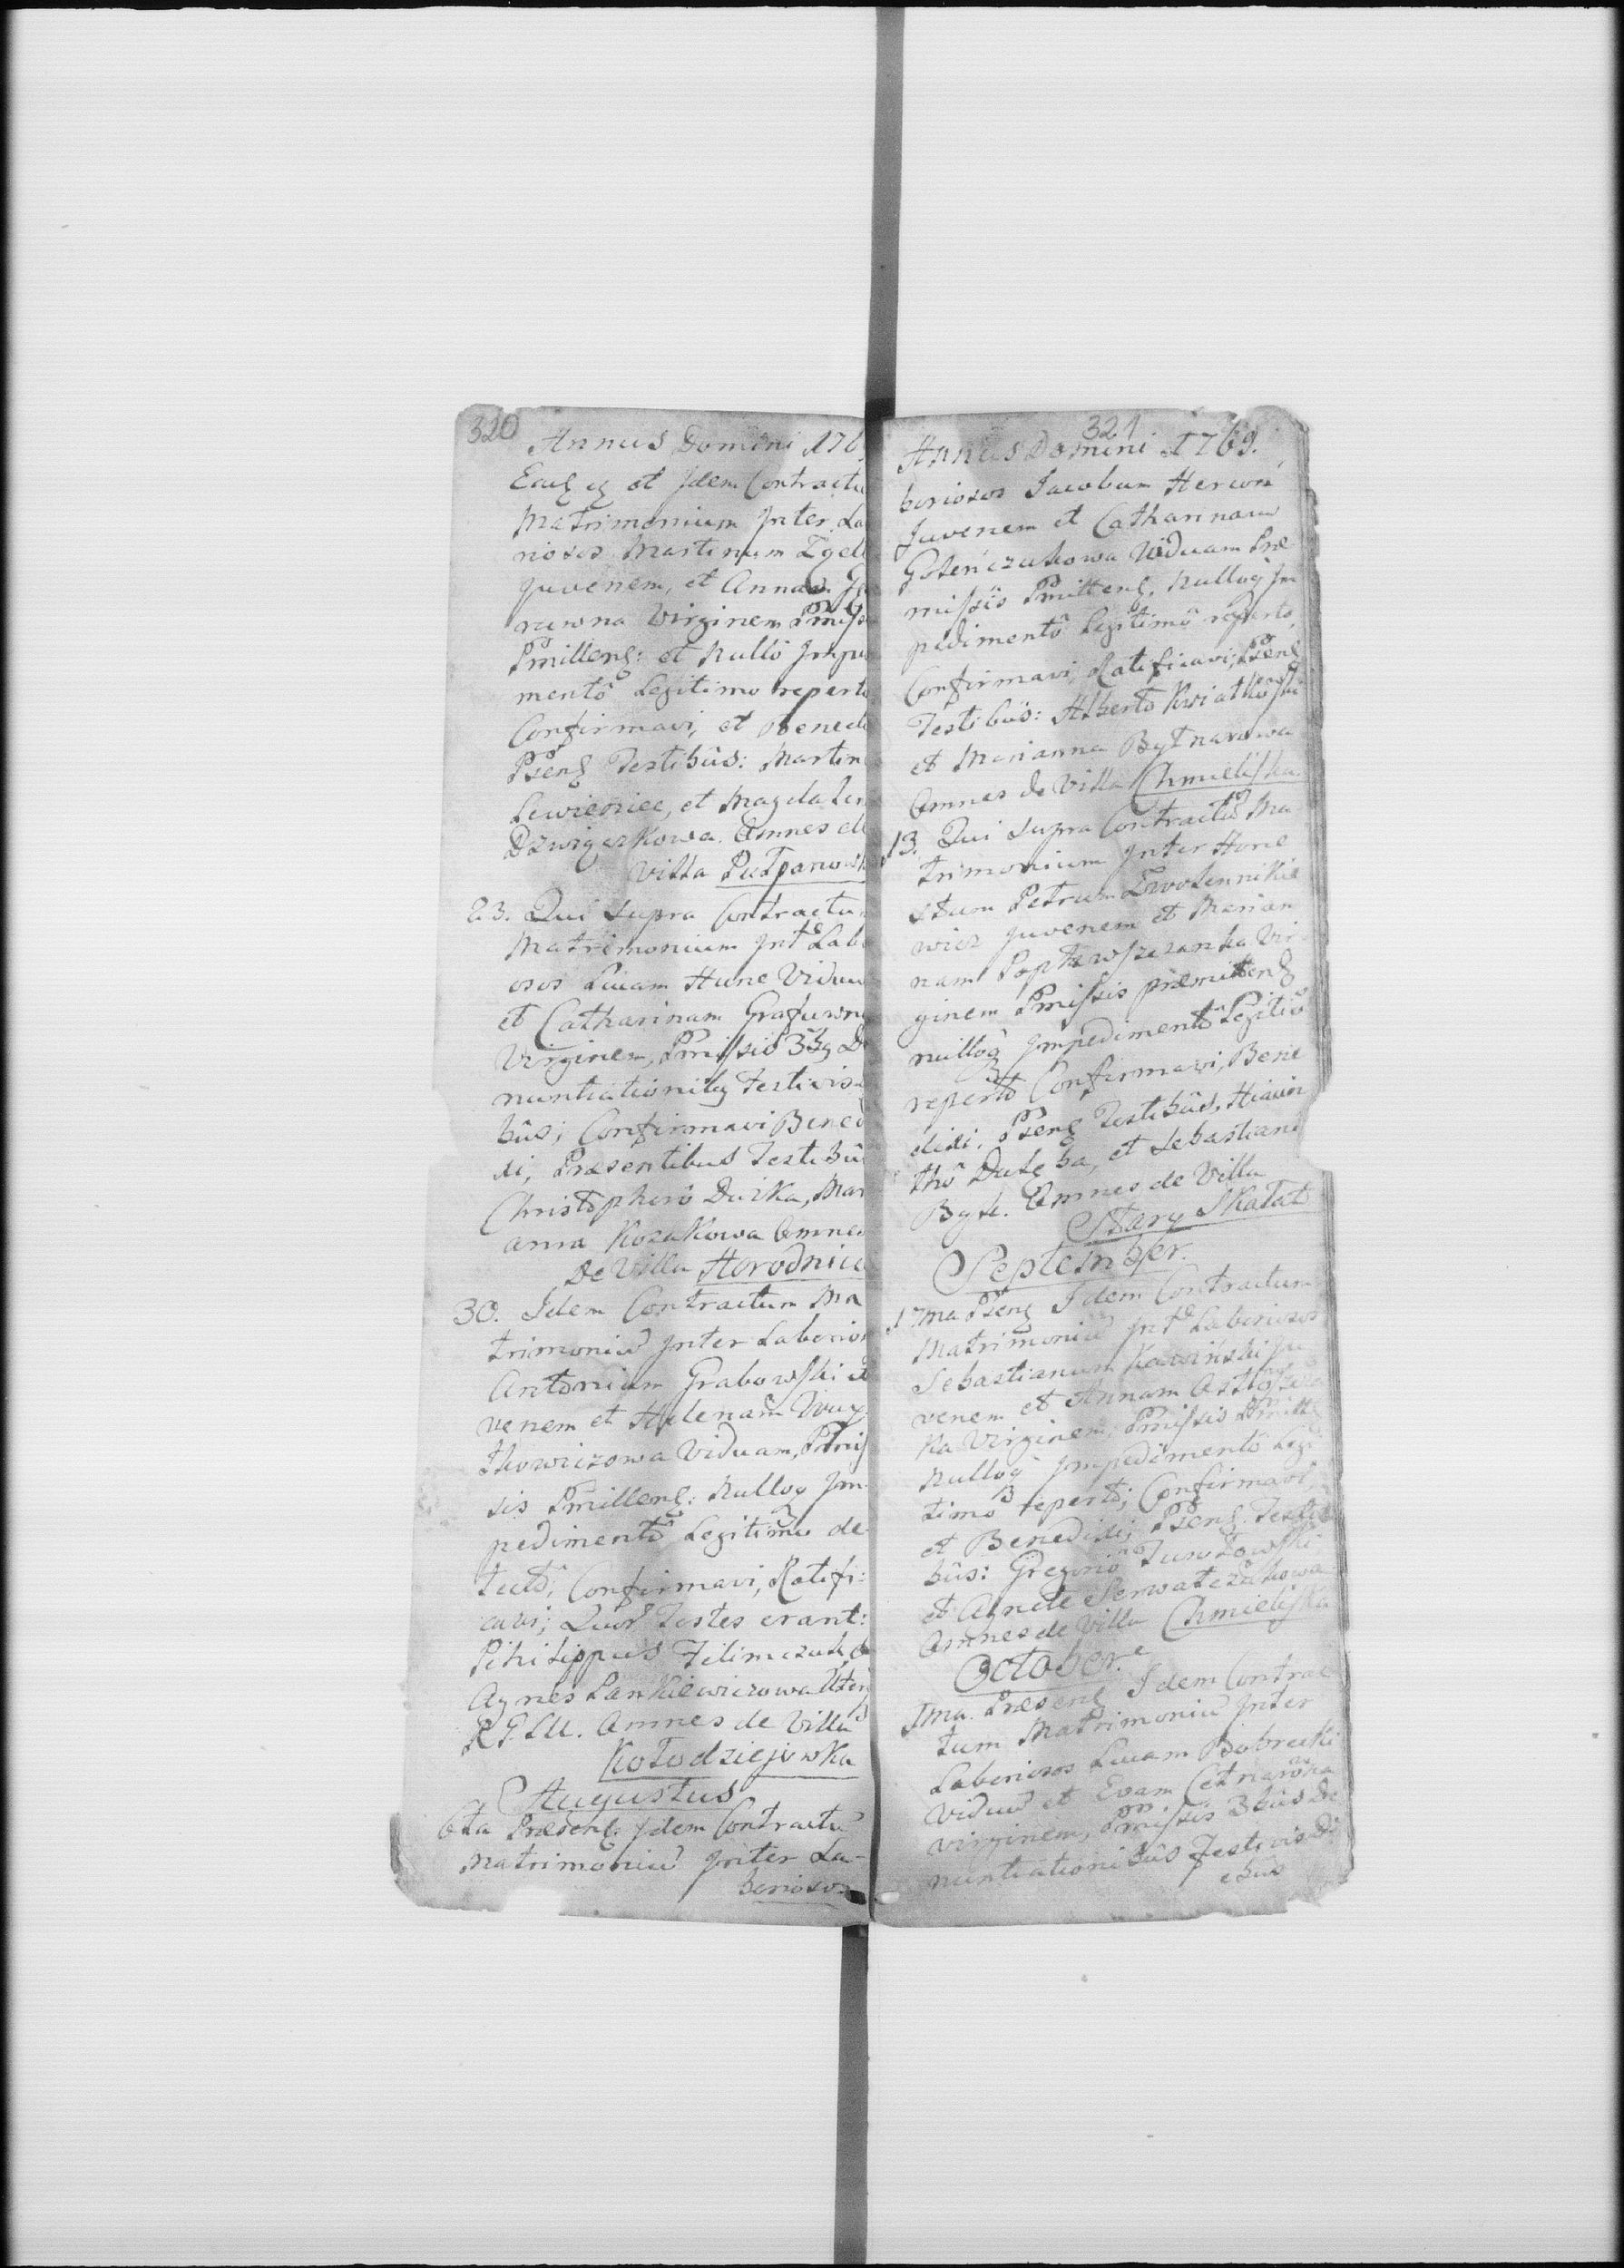 320
Annus Domini 176
et Idem Contractu
Matrimonium Inter La
riosos Martinum
Juvenem, et Annam
rewna Virginem Pmiss
Pmittens: et Nullô Impe
mentô Legitimo reperto
Confirmavi, et Bened
Psens Testibûs: Martin
Lewieniec, et Magdalen
Dzwigarkowa. Omnes de
Villa
23. Qui Supra Contractu
Matrimonium Int Labo
osos Lucam Hunc Viduu
et Catharinam
Virginem, Pmissis De
nuntiationibq Festivis
bûs; Confirmavi Bened
xi, Praesentibus Testibû
Christophorô Duzka, Mari
anna Kozakowa Omnes
De Villa Horodnica
30. Idem Contractum Ma
trimoniū Inter Laborios
Antonium Grabowski Ju
venem et Helenam
Viduam, Pmis
sis Pmittens: Nulloq Im
pedimentô Legitimo de
tectô, Confirmavi, Ratifi:
cavi; Quor Testes erant:
Pihilippus Filimczuk et
Agnes Pankiewiczowa
Omnes de Villa
Kołodziejowka
Augustus
6ta Praesens Idem Contractū
Matrimoniū Inter La-
boriosos
321
Annus Domini 1769.
boriosos Iacobum
Juvenem et Catharinam
Gołenczukowa Viduam Prae
missis Pmittens, Nulloq Im
pedimentô Legitimô reperto,
Confirmavi, Ratificavi, Psens
Testibûs: Alberto Kwiatkoski
et Marianna Bytnarowa
Omnes de Villa Chmieliska.
13. Qui Supra Contractū Ma
trimonium Inter Hone
stum Petrum Zwolennikie
wicz Juvenem et Marian
nam Vir
ginem Pmissis praemittens
nulloq Impedimentô Legitiô
repertô Confirmavi, Bene
dixi. Psens Testibûs, Hiacin
thô Dulęba, et Sebastianô
Byk. Omnes de Villa
Stary Skałat
September.
17ma Psens Idem Contractum
Matrimoniū Int Laboriosos
Sebastianum Kawiński Ju
venem et Annam
ka Virginem, Pmissis Pmitts
Nulloq Impedimentô Legi
timô repertô, Confirmavi,
et Benedixi, Psens. Testi
bûs: Gregoriô Turołowski
et Agnete Serwatczukowa
Omnes de Villa Chmieliska
October.
1ma. Praesens Idem Contrac
tum Matrimoniū Inter
Laboriosos Lucam Bobrecki
Viduū et Evam
Virginem, Pmissis 3bûs De
nuntiationibûs Festivis Di
ebus